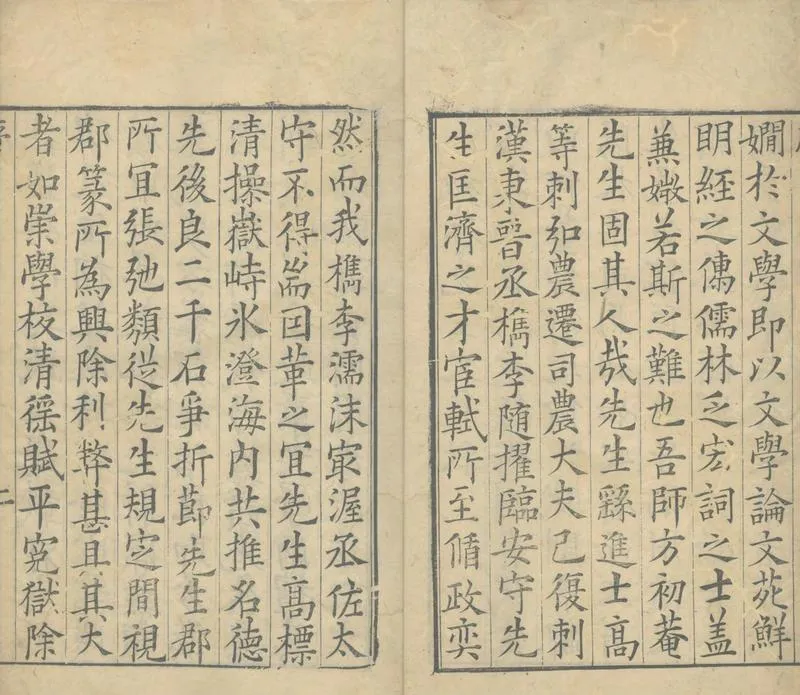 嫺於文學即以文學論文苑鮮
明經之傳儒林乏宏詞之士蓋
兼媺若斯之難也吾師方初菴
先生固其人哉先生繇進士高
等刺弘農遷司農大夫已復刺
漢東晉丞檇李随擢臨安守先
生匡濟之才宦軾所至脩政奕
然而我檇李濡沫㝡渥丞佐太
守不得耑因革之宜先生高標
清操嶽峙氷澄海内共推名德
先後良二千石爭折節先生郡
所宜張弛類從先生規定間視
郡篆所為興除利弊甚具其大
者如崇學校清徭賦平寃獄除